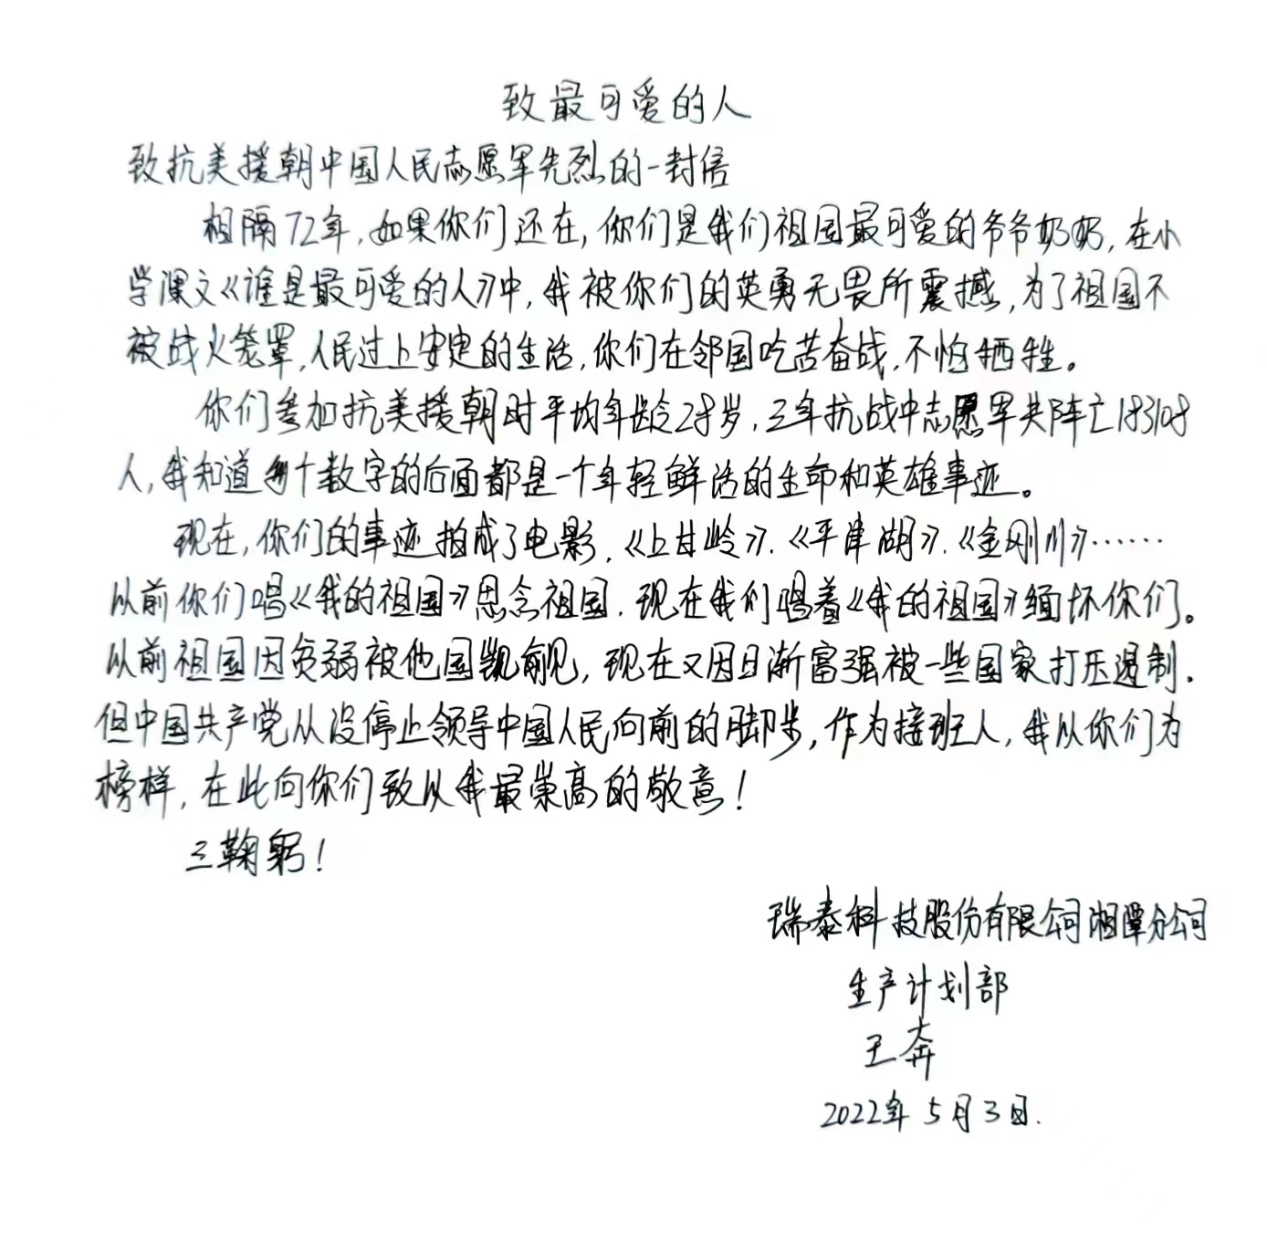 致最可爱的人
致抗美援朝中国人民志愿军先烈的一封信
相隔72年,如果你们还在,你们是我们祖国最可爱的爷爷奶奶,在小
学课文《谁是最可爱的人》中,我被你们的英勇无畏所震撼,为了祖国不
被战火笼罩,人民过上安定的生活,你们在邻国吃苦奋战,不怕牺牲。
你们参加抗美援朝时平均年龄28岁,三年抗战中志愿军共阵亡183108
人,我知道每个数字的后面都是一个年轻鲜活的生命和英雄事迹。
现在,你们的事迹拍成了电影,《上甘岭》.《平津湖》.《金刚川》……
以前你们唱《我的祖国》思念祖国.现在我们唱着《我的祖国》缅怀你们。
以前祖国因贫弱被他国觊觎,现在又因日渐富强被一些国家打压遏制.
但中国共产党从没停止领导中国人民向前的脚步,作为接班人,我以你们为
榜样,在此向你们致以我最崇高的敬意!
三鞠躬!
瑞泰科技股份有限公司湘潭分公司
生产计划部
王奔
2022年5月3日.